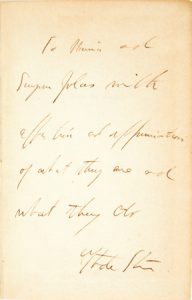 To Maria and
Eugene Jolas with
affection and appreciation
of what they are and
what they do